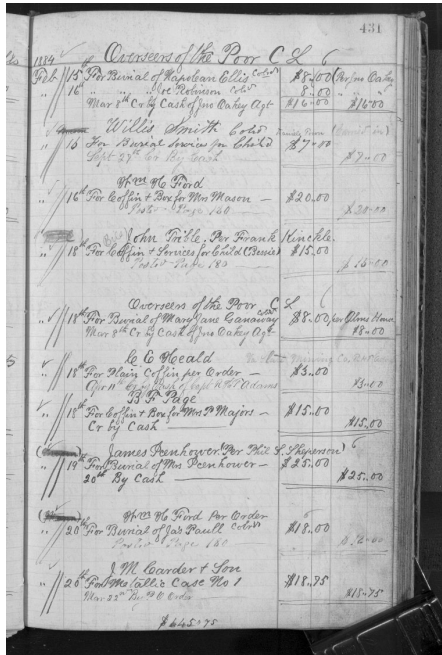 431
1884 Overseers of the Poor C L 6
Feb 15 For Burial of Napolean Ellis Cold $8.00 (Per Jno Oakey
" 16th " " " Joe Robinson Cold 8.00 " " "
Mar 8th Cr by Cash of Jno Oakey Agt $16.00 $16.00
Willis Smith Cold
15 For Burial Services for Child $7.00
Sept 27th Cr By Cash $7.00
Wm H Ford
" 16th For Coffin & Box for Mrs Mason — $20.00
Page 160 $20.00
John Trible. Per Frank Kinckle.
" 18th For Coffin & Services for Child $15.00
Page 180 $15.00
Overseers of the Poor C L 6
" 18th For Burial of Mary Jane Canaway Cold $8.00 per Alms House
Mar 8th Cr by Cash of Jno Oakey Agt $8.00
C C Heald
" 18th For Plain Coffin per Order — $3.00
Apr 11th Cr by Cash of Capt Adams $3.00
B F Page
18th For Coffin & Box for Mrs P Majors — $15.00
Cr by Cash $15.00
James Peenhower. (Per Phil S. Sheperson)
" 19th For Burial of Mrs Peenhower — $25.00
20th By Cash — $25.00
Wm H Ford Per Order
" 20th For Burial of Jas Paull Cold $18.00
Page 160
J. M. Carder & Son
" 20th For Metallic Case No 1 $18.75
Mar 22nd By P O Order $18.75
$645.75